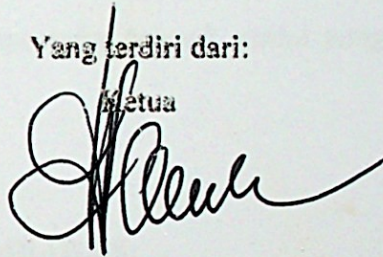 Yang terdiri dari:
Ketua